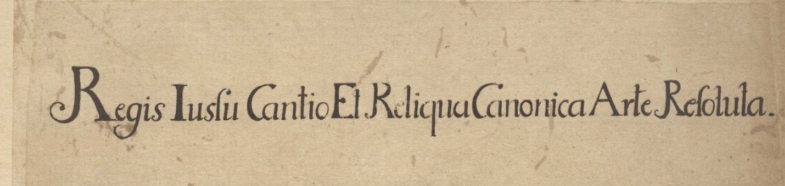 Regis Iuſſu Cantio Et Reliqua Canonica Arte Reſoluta.